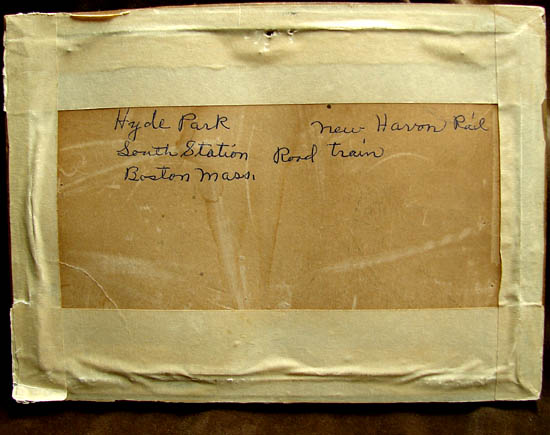 Hyde Park new Havon Rail
South Station Road train
Boston Mass.